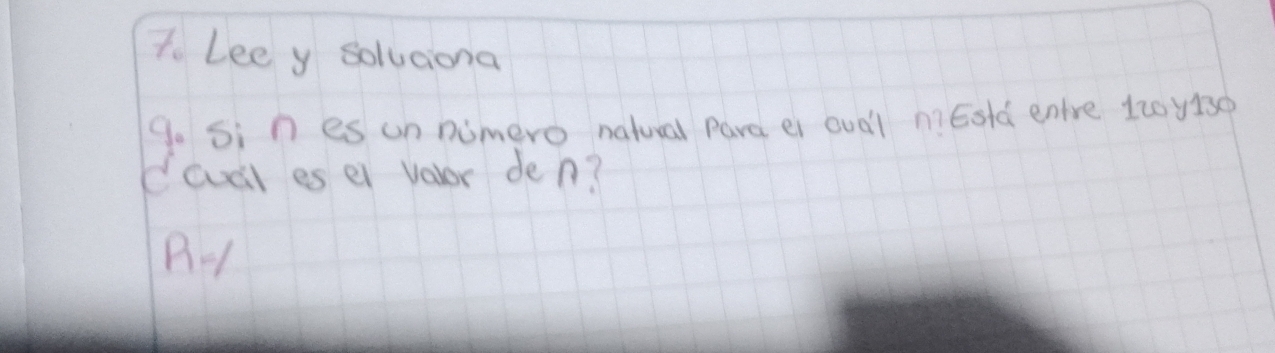 7. Lee y soluciona
g. Si n es un número natural para el cuál n? Está entre 120 y 130
¿cuál es el valor de n?
R-/